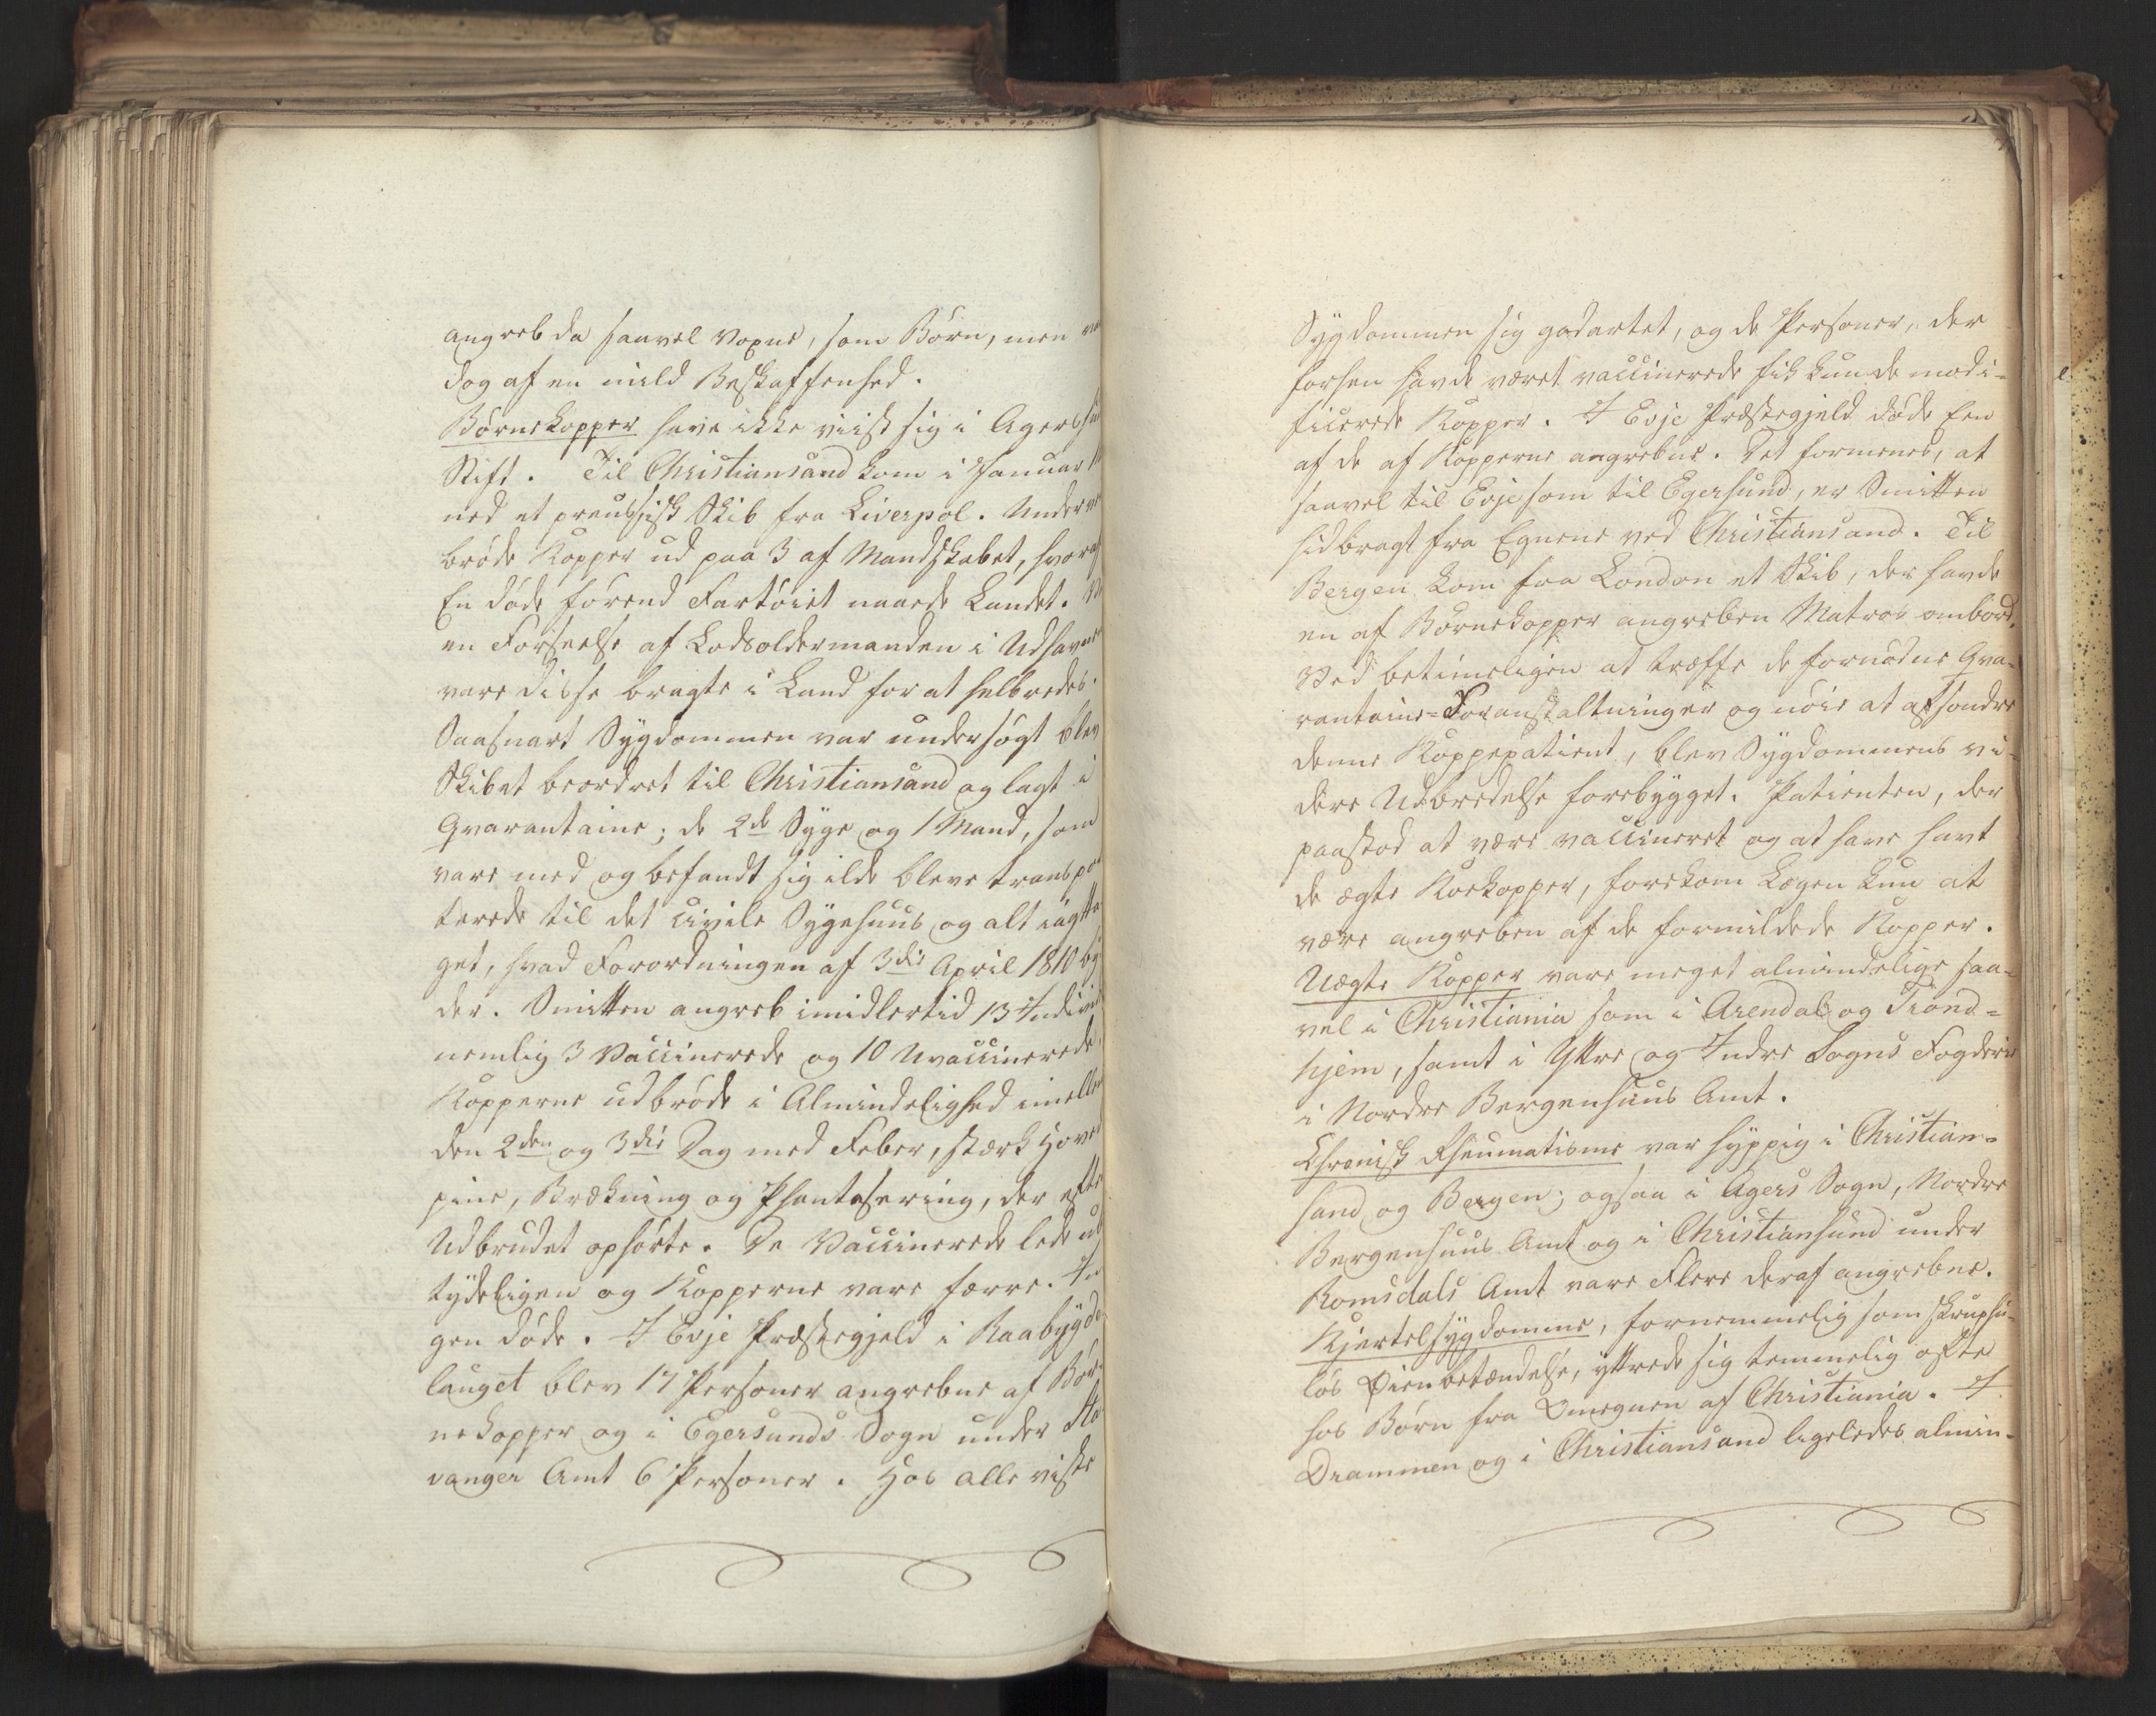 angreb da saavel Voxne, som Börn, men
dog af en mild Beskaffenhed.
Börnekopper have ikke viist sig i Agers
Stift. Til Christiansand kom i Januar
ned et preussisk Skib fra Liverpol. Under
bröde Kopper ud paa 3 af Mandskabet, hvoraf
En döde förend Fartöiet naaede Landet.
en Forseelse af Lodsoldermanden i Udhavnen
vare disse bragte i Land for at helbredes.
Saasnart Sygdommen var undersögt blev
Skibet beordret til Christiansand og lagt i
Qvarantaine; de 2de Syge og 1 Mand, som
vare med og befandt sig ilde bleve transpor
terede til det civile Sygehuus og alt iagtta
get, hvad Forordningen af 3die April 1810 by
der. Smitten angreb imidlertid 13 Individ
nemlig 3 Vaccinerede og 10 Uvaccinerede,
Kopperne udbröde i Almindelighed imellem
den 2den og 3die Dag med Feber, stærk Hoved
pine, Brækning og Phantasering, der efter
Udbrudet ophörte. De Vaccinerede lede ub
tydeligen og Kopperne vare færre. In
gen döde. I Evje Præstegjeld i Raabygde
lauget blev 17 Personer angrebne af Bör
nekopper og i Egersunds Sogn under Sta
vanger Amt 6 Personer. Hos alle viste
Sygdommen sig godartet, og de Personer, der
forhen havde været vaccinerede fik kun de modi-
ficerede Kopper. I Evje Præstegjeld döde Een
af de af Kopperne angrebne. Det formenes, at
saavel til Evje som til Egersund, er Smitten
hidbragt fra Egnene ved Christiansand. Til
Bergen kom fra London et Skib, der havde
en af Börnekopper angreben Matros ombord.
Ved betimeligen at træffe de fornödne Qva-
rantaine=Foranstaltninger og nöie at afsondre
denne Koppepatient, blev Sygdommens vi-
dere Udbredelse forebygget. Patienten, der
paastod at være vaccineret og at have havt
de ægte Koekopper, forekom Lægen kun at
være angreben af de formildede Kopper.
Uægte Kopper vare meget almindelige saa-
vel i Christiania som i Arendal og Trond=
hjem, samt i Yttre og Indre Sogns Fogderie
i Nordre Bergenhuus Amt.
Chronisk Rheumatisme var hyppig i Christian-
sand og Bergen; ogsaa i Agers Sogn, Nordre
Bergenhuus Amt og i Christiansund under
Romsdals Amt vare Flere deraf angrebne.
Kjertelsygdomme, fornemmelig som skrophu-
lös Öienbetændelse, yttrede sig temmelig ofte
hos Börn fra Omegnen af Christiania. I
Drammen og i Christiansand ligeledes almin-